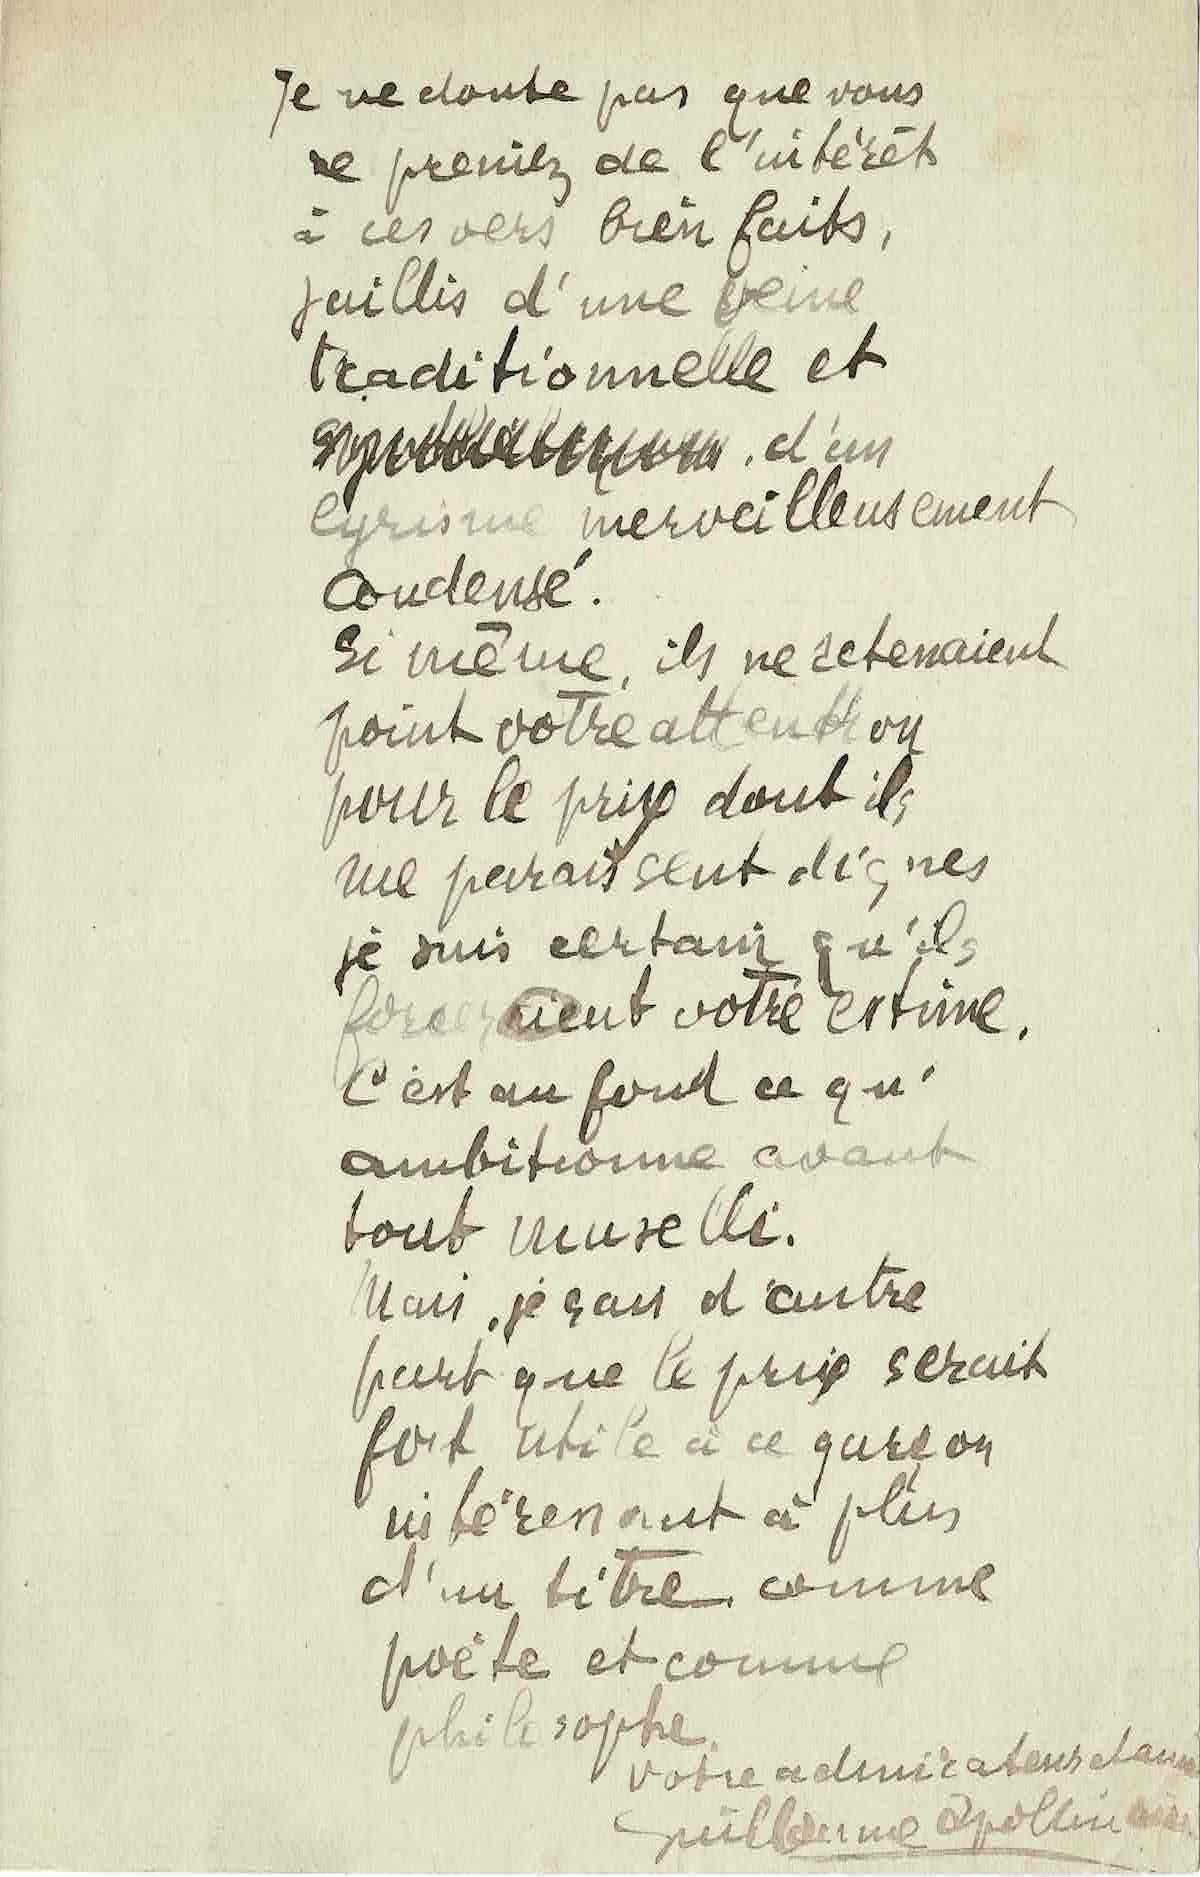 Je ne doute pas que vous
ne preniez de l'intérêt
à ces vers bien faits,
jaillis d'une veine
traditionnelle et
d'un
lyrisme merveilleusement
condensé.
Si même, ils ne retenaient
point votre attention
pour le prix dont ils
me paraissent dignes
je suis certain qu'ils
forceraient votre estime.
C'est au fond ce qu'
ambitionne avant
tout Muselli.
Mais, je sais d'autre
part que le prix serait
fort utile à ce garçon
intéressant à plus
d'un titre, comme
poète et comme
philosophe.
votre admirateur et ami
Guillaume Apollinaire